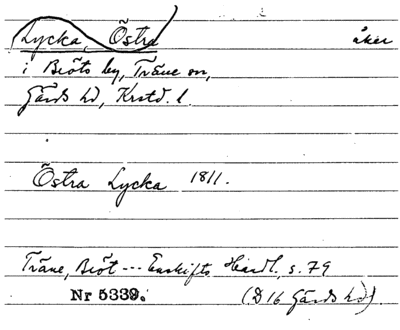 Lycka, Östra åker
i Bröts by, Träne sn,
Gärds hd, Krstd. l.
Östra Lycka 1811.
Träne, Bröt --- Enskifts Handl., s. 79
Nr 5339. (D 16 Gärds hd).